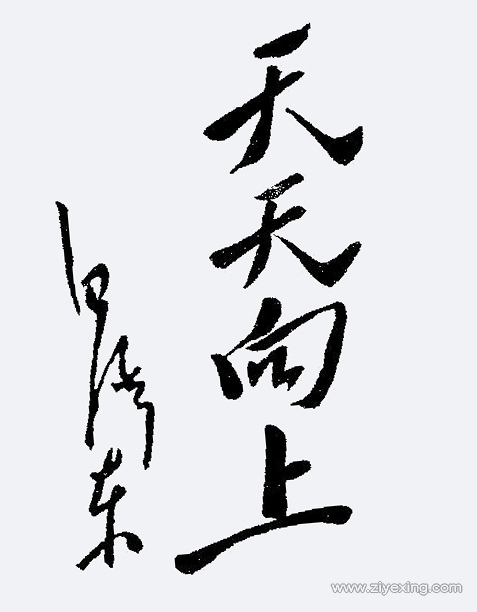 天天向上
毛泽东
www.ziyexing.com